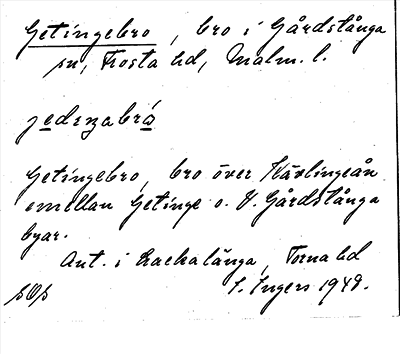 Getingebro, bro i Gårdstånga
sn, Frosta hd, Malm. l.
jedeŋabrå
Getingebro, bro över Kävlingeån
emellan Getinge o. V. Gårdstånga
byar.
Ant. i Hackalänga, Torna hd
I. Ingers 1948.